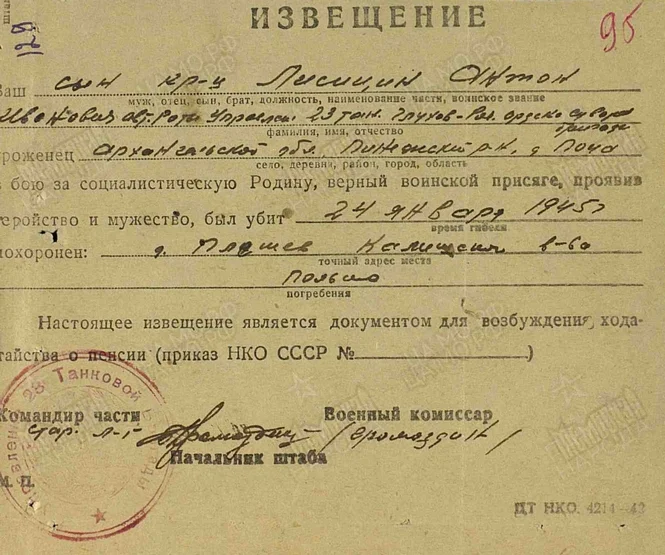 ИЗВЕЩЕНИЕ
129
95
Ваш сын кр-ц Лисицин Антон
муж, отец, сын, брат, должность, наименование части, воинское звание
Иванович авт. Роты Управлен 23 тан. Глухов-Реч. ордена Суворова бригады
фамилия, имя, отчество
уроженец Архангельской обл, Пинежский р-н, д
село, деревня, район, город, область
в бою за социалистическую Родину, верный воинской присяге, проявив
геройство и мужество, был убит 24 января 1945г
время гибели
похоронен: д. в-во
точный адрес места
Польша
погребения
Настоящее извещение является документом для возбуждения хода-
тайства о пенсии (приказ НКО СССР № )
Командир части Военный комиссар
Стар. л-т /Громоздин/
Начальник штаба
М. П.
Танковой
ДТ НКО. 4214—43